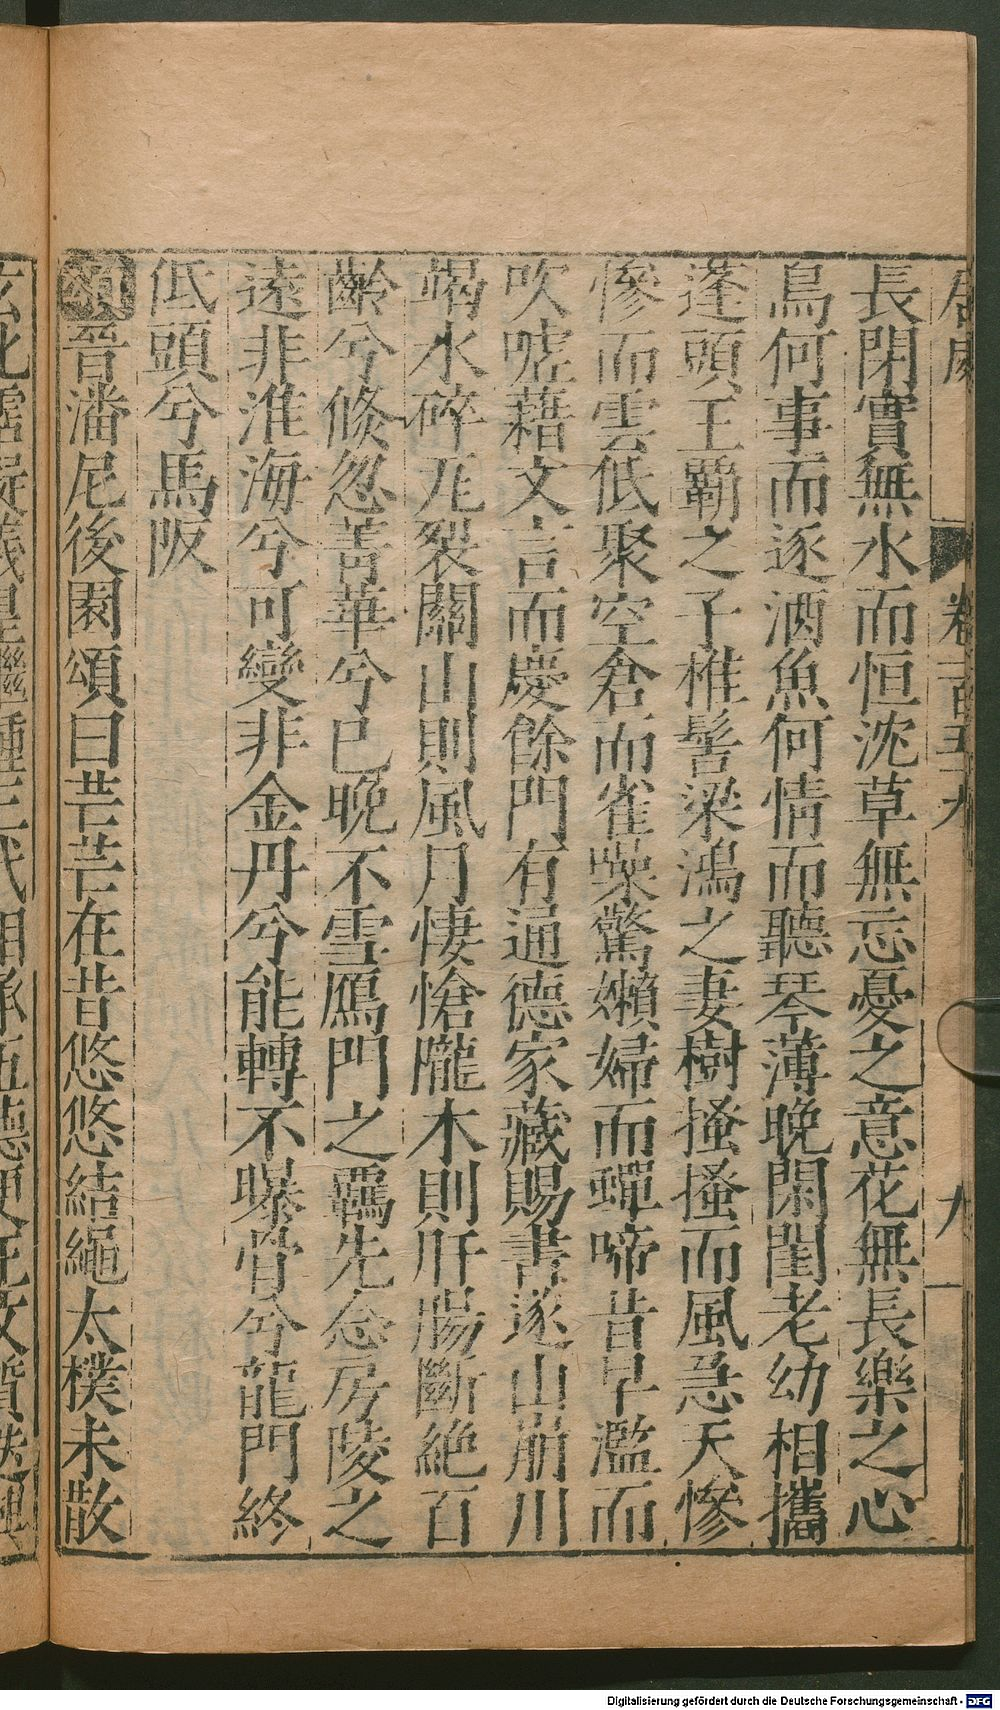 居處　卷一百五　九
長閉實無水而恒沈草無忘憂之意花無長樂之心
鳥何事而逐酒魚何情而聽琴薄晚閑閨老幼相攜
蓬頭王霸之子椎髻梁鴻之妻樹搔搔而風急天慘
慘而雲低聚空倉而雀噪驚嬾婦而蟬啼昔早濫而
吹噓藉文言而慶餘門有通德家藏賜書遂山崩川
竭水碎瓦裂關山則風月悽愴隴木則肝腸斷絕百
齡兮倐忽菁華兮已晚不雪鴈門之羈先念房陵之
遠非淮海兮可變非金丹兮能轉不曝骨兮龍門終
低頭兮馬阪
頌晉潘尼後園頌曰芒芒在昔悠悠結繩太樸未散
玄化羲皇繼踵三代相承伍德更王文質迭興
Digitalisierung gefördert durch die Deutsche Forschungsgemeinschaft - DFG